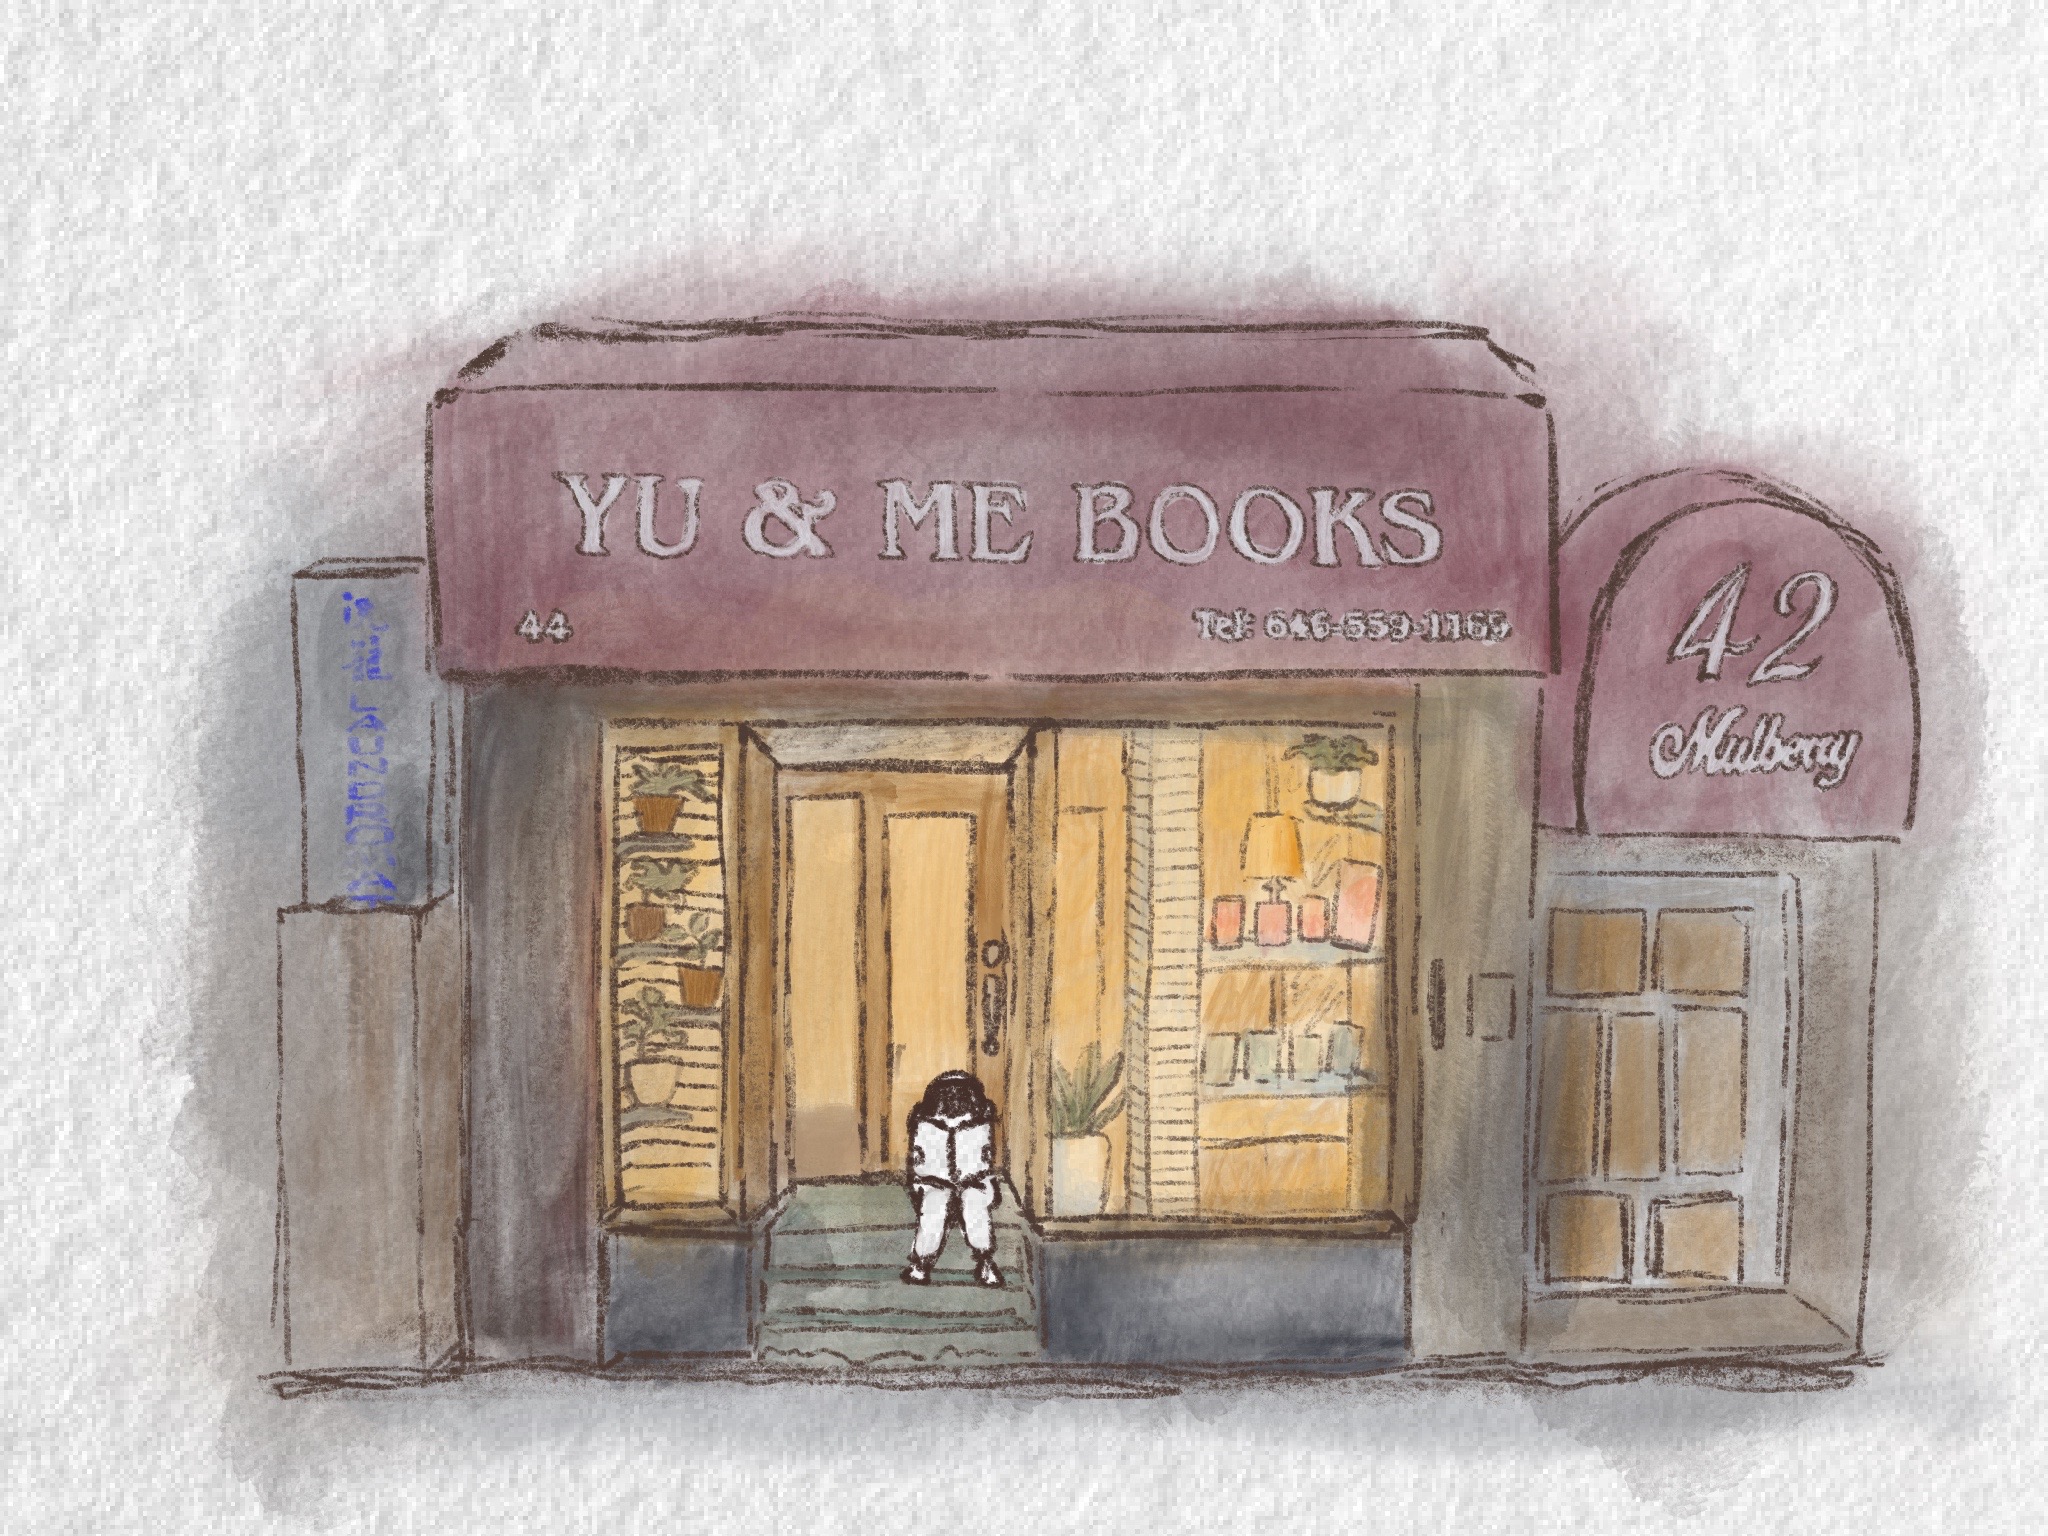 YU & ME BOOKS
44
Tel: 646-559-1165
42
Mulberry